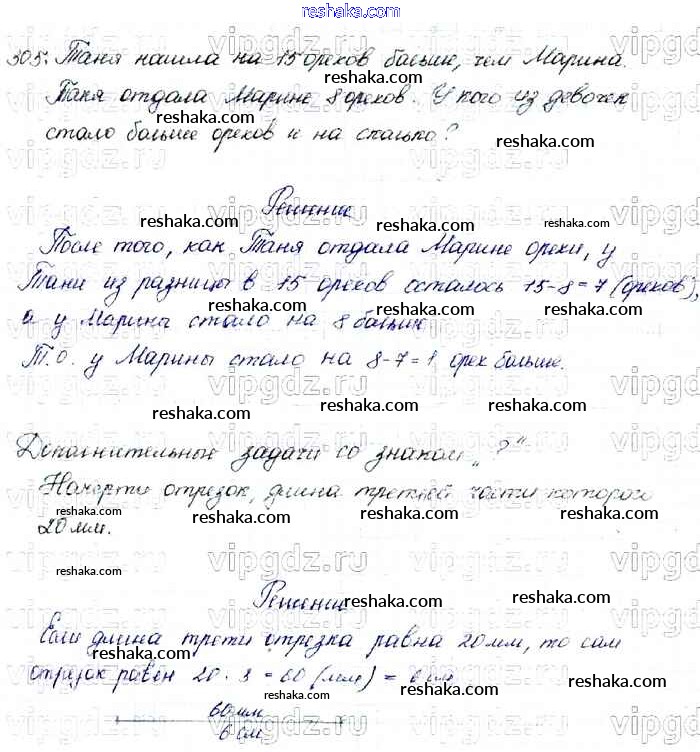 reshaka.com
305. Таня нашла на 15 орехов больше, чем Марина.
Таня отдала Марине 8 орехов. У кого из девочек
стало больше орехов и на сколько?
Решение
После того, как Таня отдала Марине орехи, у
Тани из разницы в 15 орехов осталось 15-8=7 (орехов),
а у Марины стало на 8 больше.
Т.о. у Марины стало на 8-7=1 орех больше.
Дополнительные задачи со знаком „?“
Начерти отрезок, длина третьей части которого
20 мм.
Решение
Если длина трети отрезка равна 20 мм, то сам
отрезок равен 20 · 3 = 60 (мм) = 6 см
60 мм
6 см
vipgdz.ru
reshaka.com